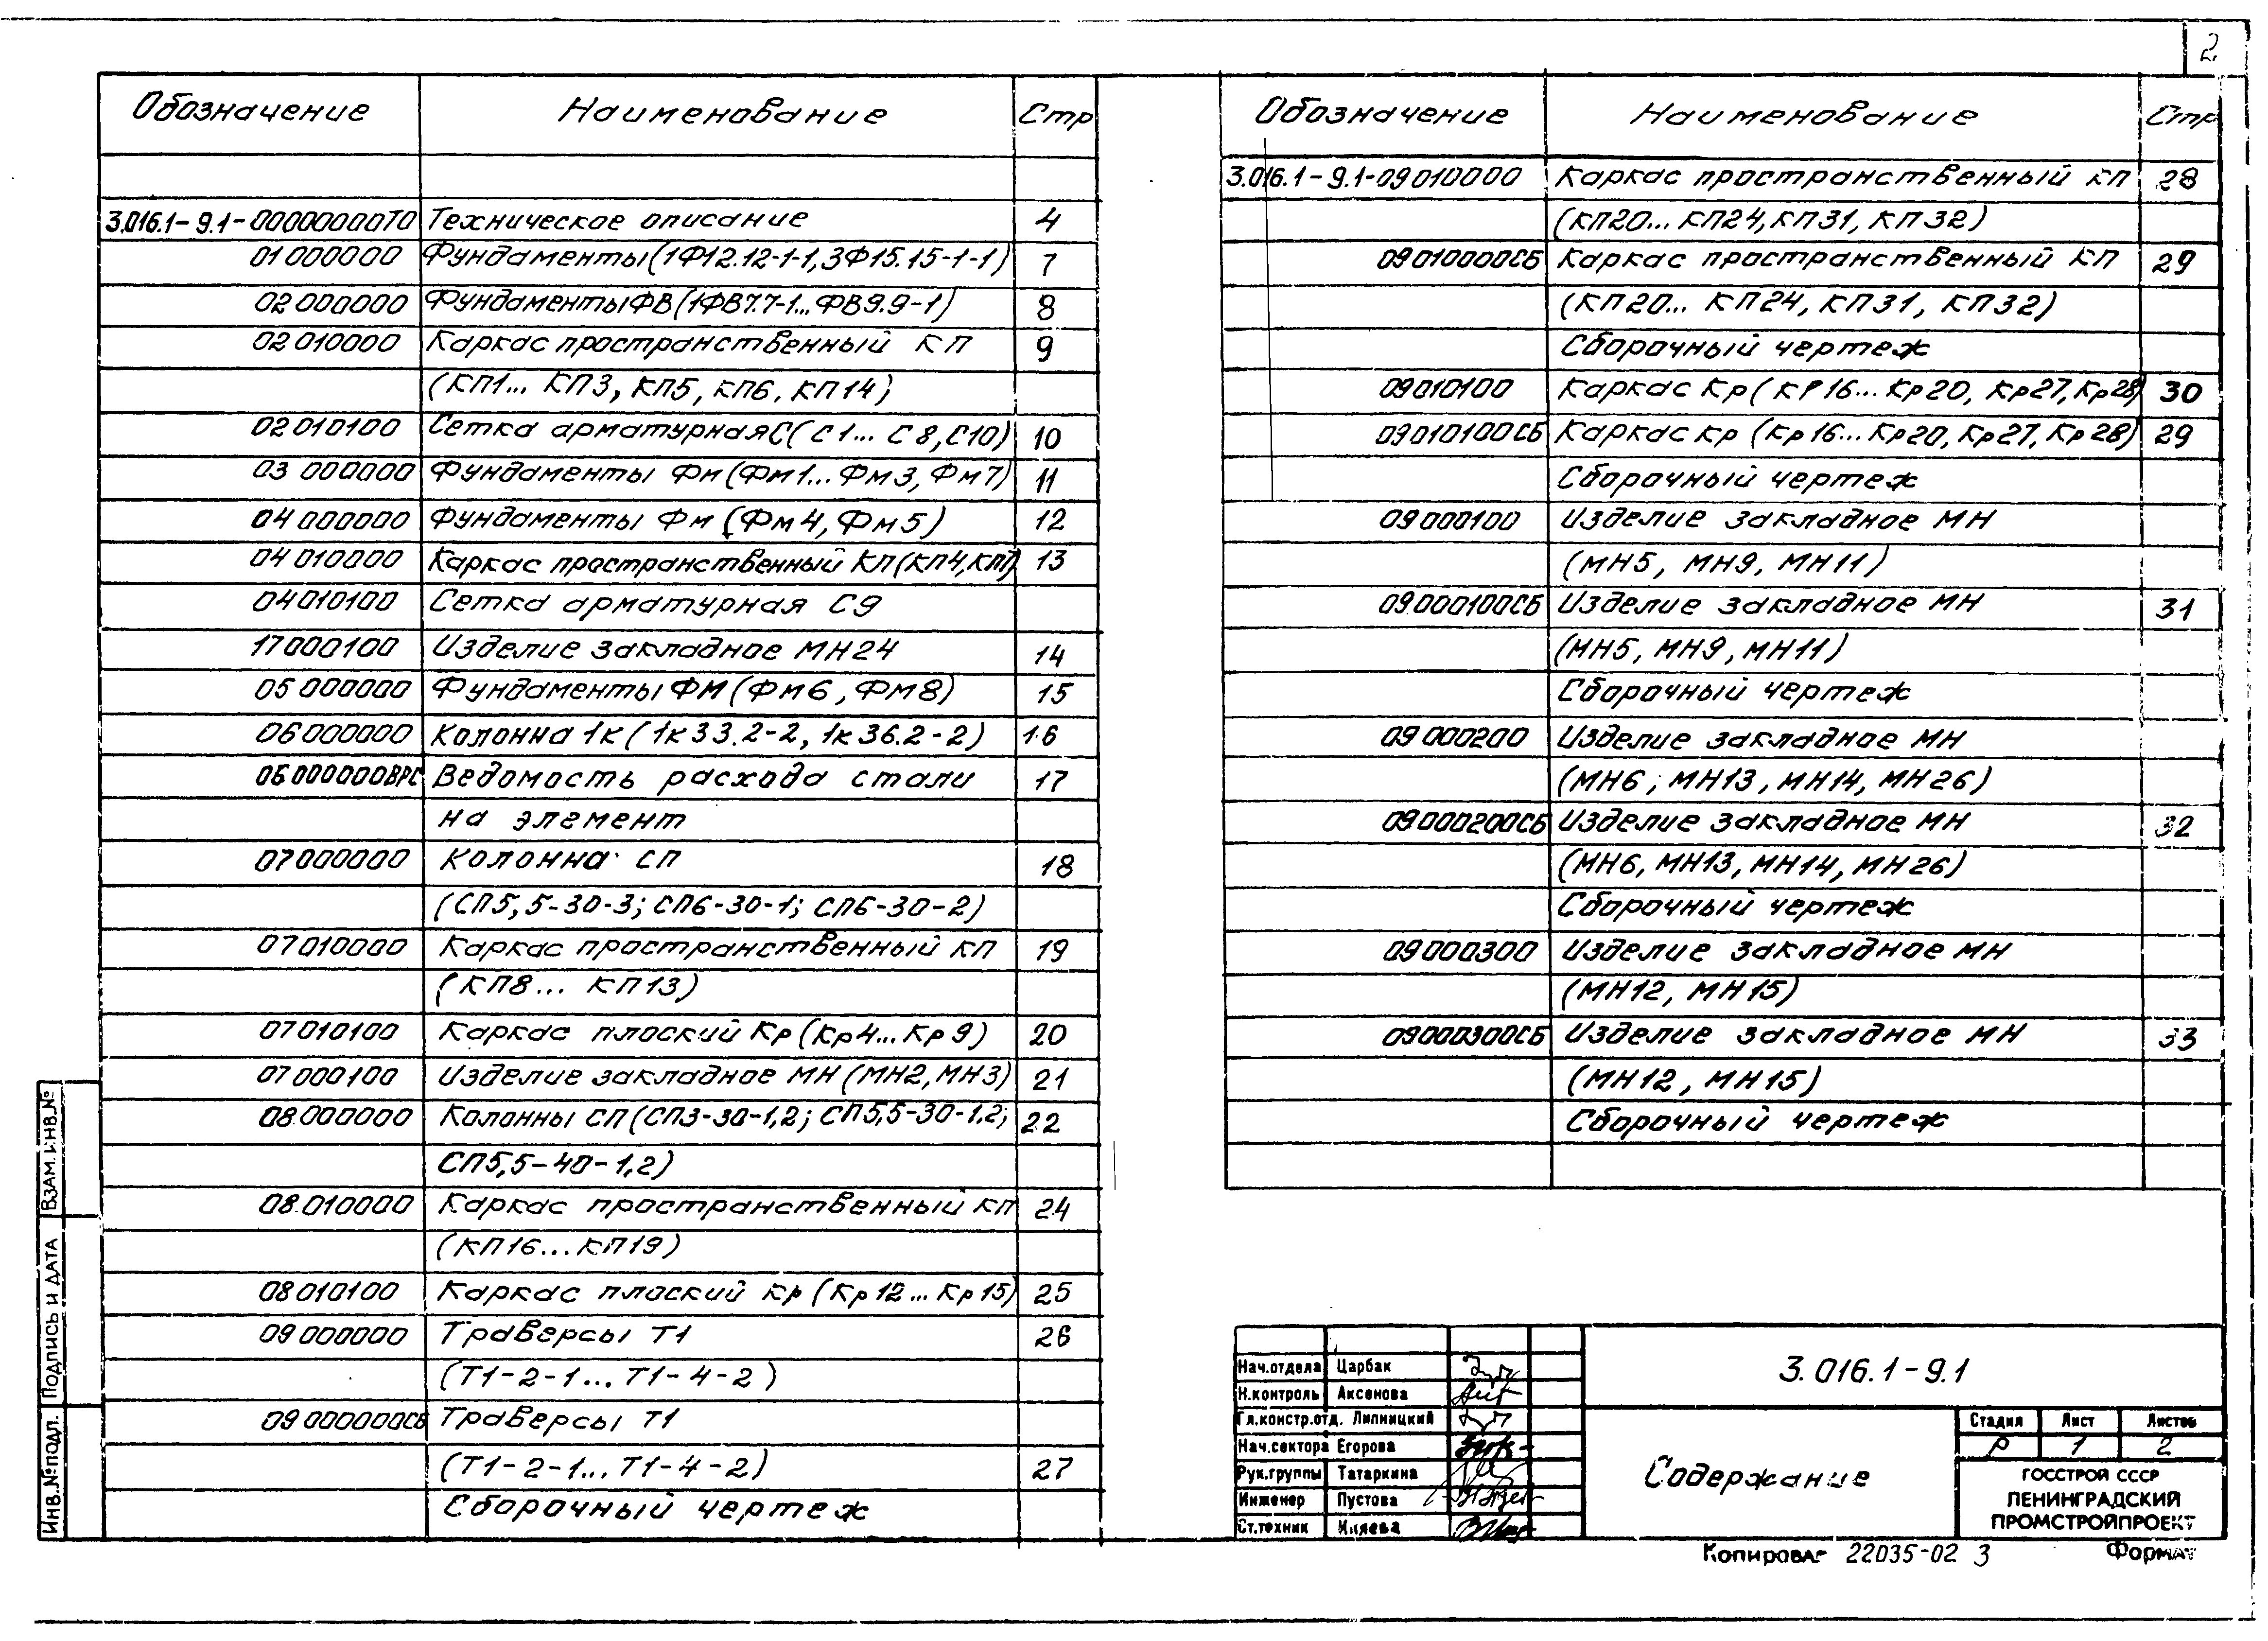 2
Обозначение Наименование Стр
3.016.1-9.1-00000000ТО Техническое описание 4
01 000000 Фундаменты (1Ф12.12-1-1, 3Ф15.15-1-1) 7
02 000000 Фундаменты ФВ (1ФВ7.7-1... ФВ9.9-1) 8
02 010000 Каркас пространственный КП 9
(КП1... КП3, КП5, КП6, КП14)
02 010100 Сетка арматурная С (С1... С8, С10) 10
03 000000 Фундаменты Фм (Фм1... Фм3, Фм7) 11
04 000000 Фундаменты Фм (Фм4, Фм5) 12
04 010000 Каркас пространственный КП (КП4, КП7) 13
04010100 Сетка арматурная С9
17000100 Изделие закладное МН24 14
05 000000 Фундаменты ФМ (Фм6, ФМ8) 15
06 000000 Колонна 1к (1к33.2-2, 1к36.2-2) 16
06 000000ВРС Ведомость расхода стали 17
на элемент
07000000 Колонна СП 18
(СП5,5-30-3; СП6-30-1; СП6-30-2)
07010000 Каркас пространственный КП 19
(КП8... КП13)
07010100 Каркас плоский Кр (Кр4... Кр9) 20
07 000100 Изделие закладное МН (МН2, МН3) 21
08.000000 Колонны СП (СП3-30-1,2; СП5,5-30-1,2; 22
СП5,5-40-1,2)
08.010000 Каркас пространственный КП 24
(КП16... КП19)
08 010100 Каркас плоский Кр (Кр12... Кр15) 25
09 000000 Траверсы Т1 26
(Т1-2-1... Т1-4-2)
09 000000СБ Траверсы Т1
(Т1-2-1... Т1-4-2) 27
Сборочный чертеж
Обозначение Наименование Стр
3.016.1-9.1-09010000 Каркас пространственный КП 28
(КП20... КП24, КП31, КП32)
09010000СБ Каркас пространственный КП 29
(КП20... КП24, КП31, КП32)
Сборочный чертеж
09010100 Каркас Кр (Кр16... Кр20, Кр27, Кр28) 30
09010100СБ Каркас Кр (Кр16... Кр20, Кр27, Кр28) 29
Сборочный чертеж
09000100 Изделие закладное МН
(МН5, МН9, МН11)
09.000100СБ Изделие закладное МН 31
(МН5, МН9, МН11)
Сборочный чертеж
09 000200 Изделие закладное МН
(МН6, МН13, МН14, МН26)
09.000200СБ Изделие закладное МН 32
(МН6, МН13, МН14, МН26)
Сборочный чертеж
09000300 Изделие закладное МН
(МН12, МН15)
09000300СБ Изделие закладное МН 33
(МН12, МН15)
Сборочный чертеж
Взам.инв.№
Подпись и дата
Инв.№подл.
Нач.отдела Царбак
Н.контроль Аксенова
Гл.констр.отд. Липницкий
Нач.сектора Егорова
Рук.группы Татаркина
Инженер Пустова
Ст.техник
3.016.1-9.1
Содержание
Стадия Лист Листов
Р 1 2
ГОССТРОЙ СССР
ЛЕНИНГРАДСКИЙ
ПРОМСТРОЙПРОЕКТ
Копировал 22035-02 3 Формат